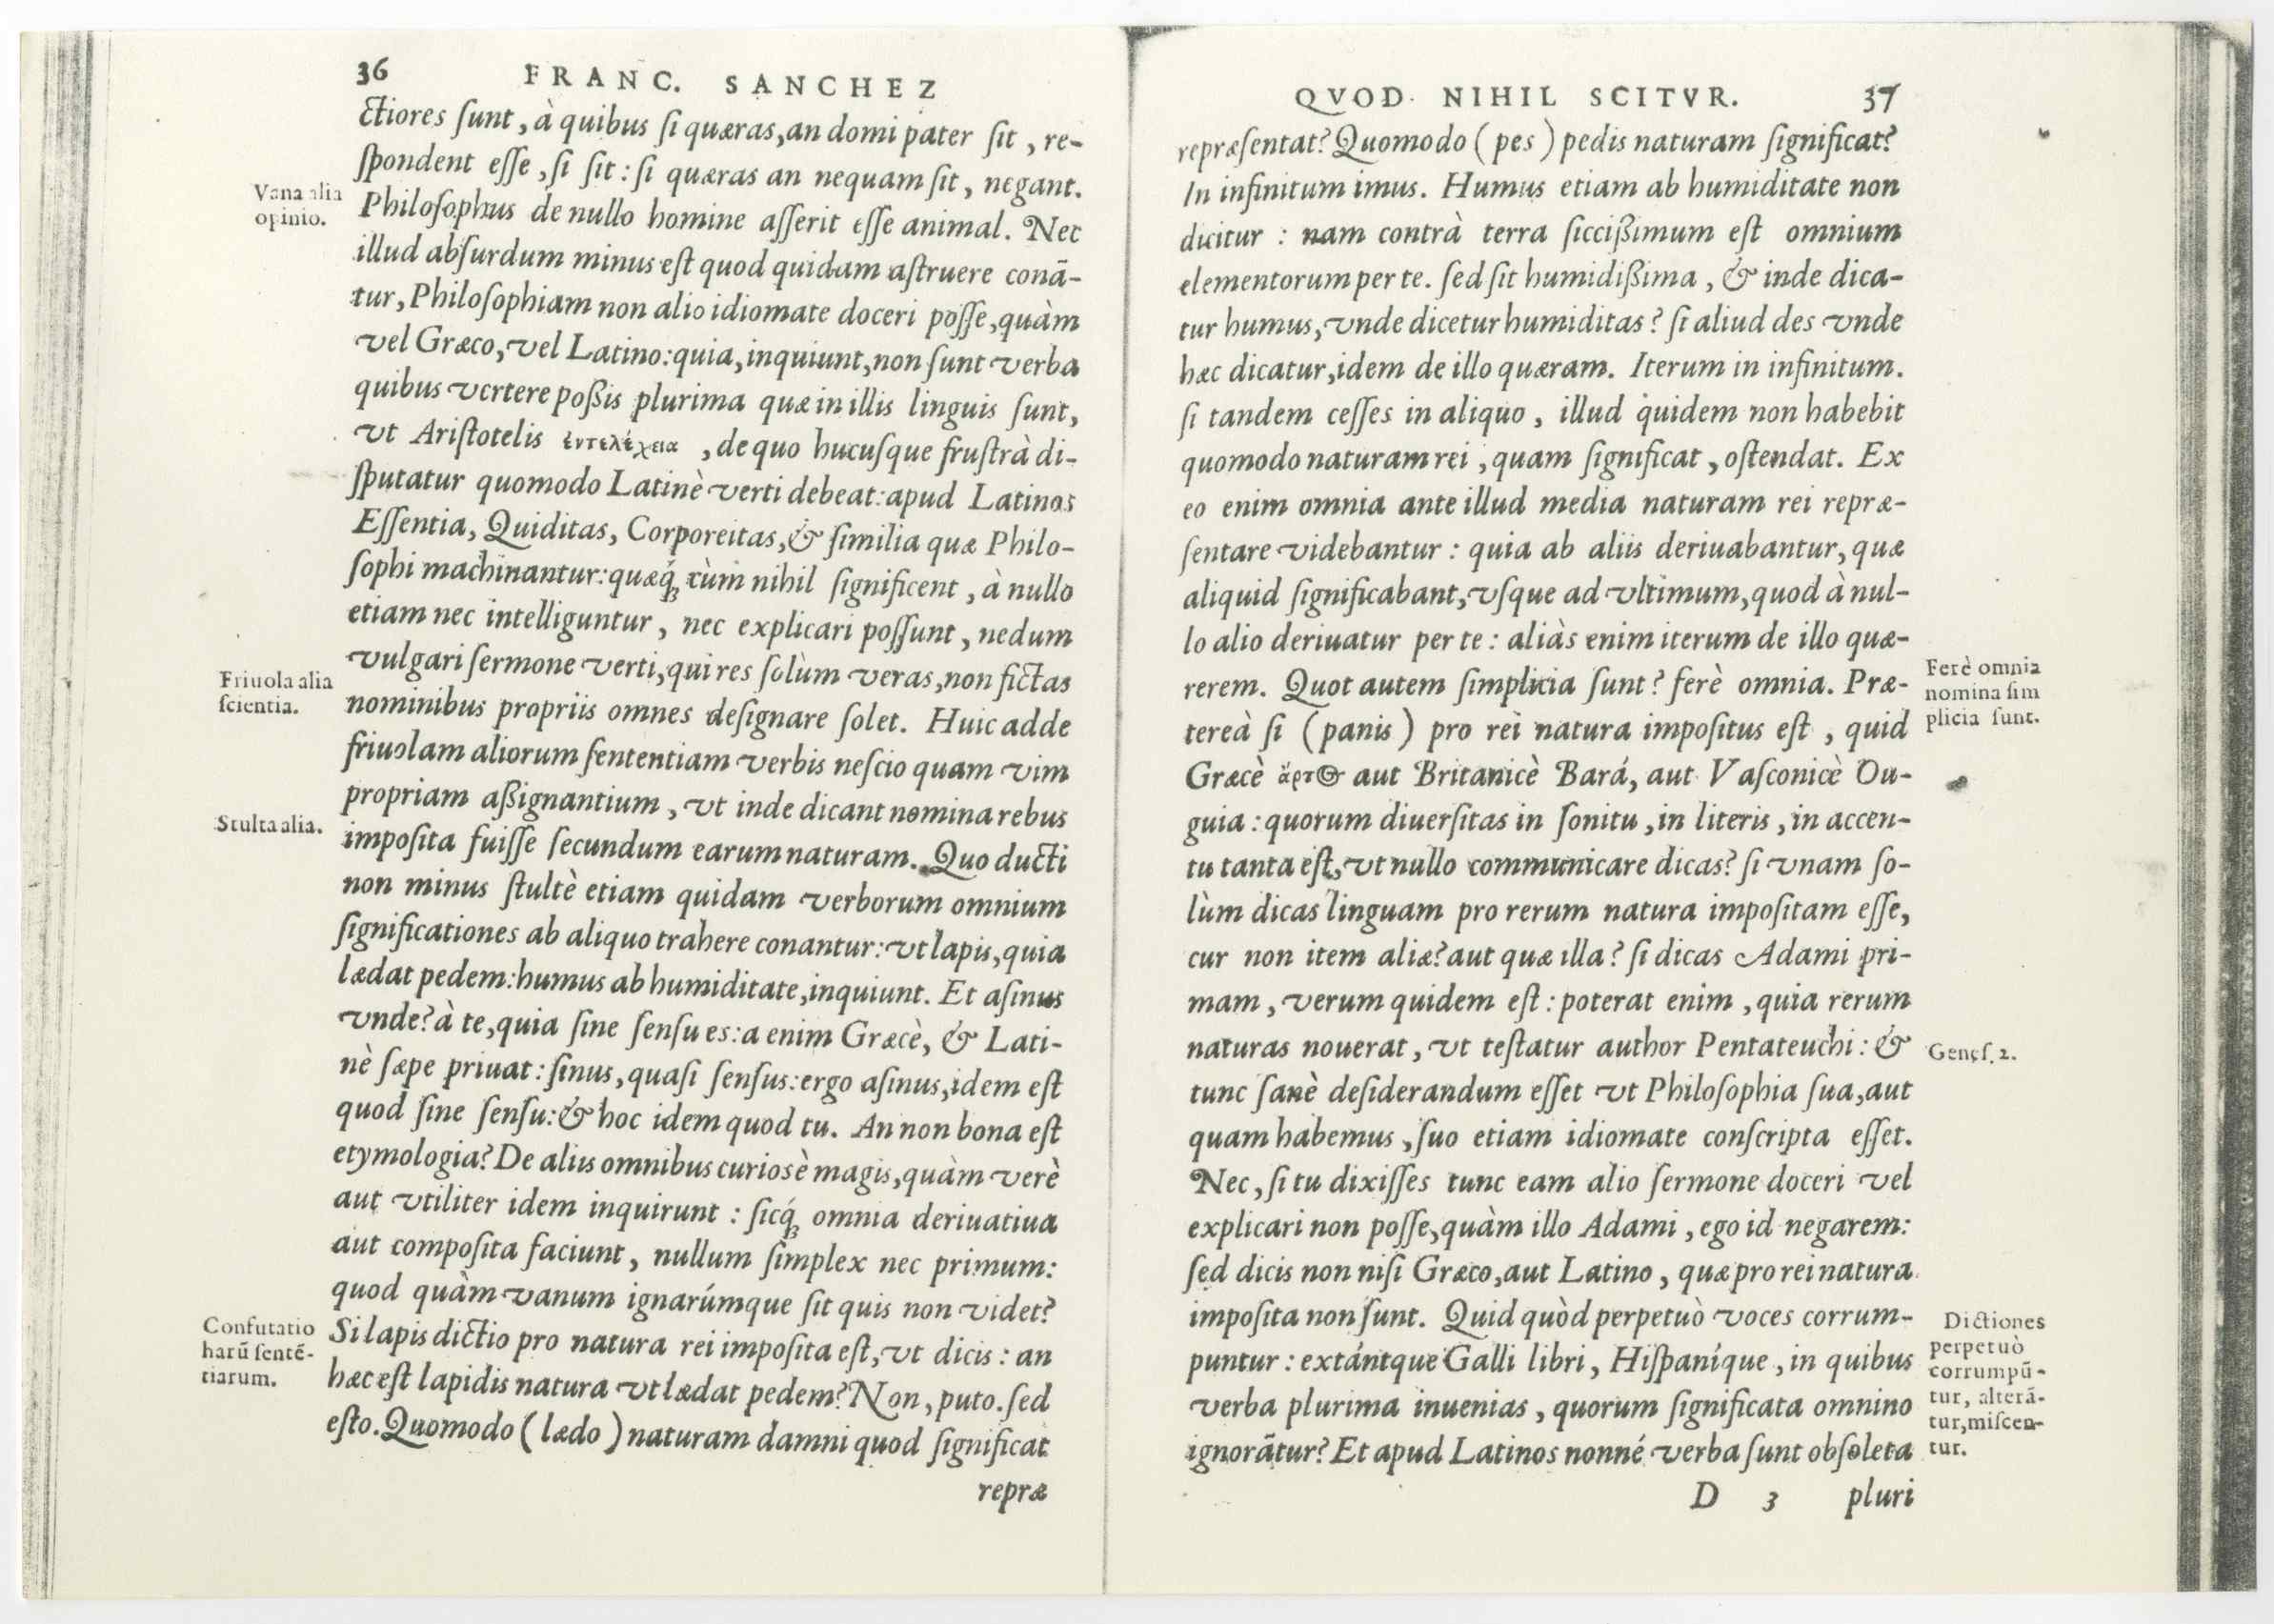 36 FRANC. SANCHEZ
ctiores ſunt, à quibus ſi quæras, an domi pater ſit, re-
ſpondent eſſe, ſi ſit: ſi quæras an nequam ſit, negant.
Vana alia
opinio.
Philoſophus de nullo homine aſſerit eſſe animal. Nec
illud abſurdum minus eſt quod quidam aſtruere conā-
tur, Philoſophiam non alio idiomate doceri poſſe, quàm
vel Græco, vel Latino: quia, inquiunt, non ſunt verba
quibus vertere poßis plurima quæ in illis linguis ſunt,
vt Ariſtotelis ἐντελέχεια, de quo hucuſque fruſtrà di-
ſputatur quomodo Latinè verti debeat: apud Latinos
Eſſentia, Quiditas, Corporeitas, & ſimilia quæ Philo-
ſophi machinantur: quæq́ꝫ cùm nihil ſignificent, à nullo
etiam nec intelliguntur, nec explicari poſſunt, nedum
vulgari ſermone verti, qui res ſolùm veras, non fictas
Friuola alia
ſcientia.
nominibus propriis omnes deſignare ſolet. Huic adde
friuolam aliorum ſententiam verbis neſcio quam vim
propriam aßignantium, vt inde dicant nomina rebus
Stulta alia.
impoſita fuiſſe ſecundum earum naturam. Quo ducti
non minus ſtultè etiam quidam verborum omnium
ſignificationes ab aliquo trahere conantur: vt lapis, quia
lædat pedem: humus ab humiditate, inquiunt. Et aſinus
vnde? à te, quia ſine ſenſu es: a enim Græcè, & Lati-
nè ſæpe priuat: ſinus, quaſi ſenſus: ergo aſinus, idem eſt
quod ſine ſenſu: & hoc idem quod tu. An non bona eſt
etymologia? De aliis omnibus curiosè magis, quàm verè
aut vtiliter idem inquirunt: ſicq́ꝫ omnia deriuatiua
aut compoſita faciunt, nullum ſimplex nec primum:
quod quàm vanum ignarúmque ſit quis non videt?
Confutatio
harū ſentē-
tiarum.
Si lapis dictio pro natura rei impoſita eſt, vt dicis: an
hæc eſt lapidis natura vt lædat pedem? Non, puto. ſed
eſto. Quomodo (lædo) naturam damni quod ſignificat
repræ
QVOD NIHIL SCITVR. 37
repræſentat? Quomodo (pes) pedis naturam ſignificat?
In infinitum imus. Humus etiam ab humiditate non
dicitur: nam contrà terra ſiccißimum eſt omnium
elementorum per te. ſed ſit humidißima, & inde dica-
tur humus, vnde dicetur humiditas? ſi aliud des vnde
hæc dicatur, idem de illo quæram. Iterum in infinitum.
ſi tandem ceſſes in aliquo, illud quidem non habebit
quomodo naturam rei, quam ſignificat, oſtendat. Ex
eo enim omnia ante illud media naturam rei repræ-
ſentare videbantur: quia ab aliis deriuabantur, quæ
aliquid ſignificabant, vſque ad vltimum, quod à nul-
lo alio deriuatur per te: aliàs enim iterum de illo quæ-
rerem. Quot autem ſimplicia ſunt? ferè omnia. Præ-
Ferè omnia
nomina ſim
plicia ſunt.
tereà ſi (panis) pro rei natura impoſitus eſt, quid
Græcè ἄρτος aut Britanicè Bará, aut Vaſconicè Ou-
guia: quorum diuerſitas in ſonitu, in literis, in accen-
tu tanta eſt, vt nullo communicare dicas? ſi vnam ſo-
lùm dicas linguam pro rerum natura impoſitam eſſe,
cur non item aliæ? aut quæ illa? ſi dicas Adami pri-
mam, verum quidem eſt: poterat enim, quia rerum
naturas nouerat, vt teſtatur author Pentateuchi: &
Geneſ. 2.
tunc ſanè deſiderandum eſſet vt Philoſophia ſua, aut
quam habemus, ſuo etiam idiomate conſcripta eſſet.
Nec, ſi tu dixiſſes tunc eam alio ſermone doceri vel
explicari non poſſe, quàm illo Adami, ego id negarem:
ſed dicis non niſi Græco, aut Latino, quæ pro rei natura
impoſita non ſunt. Quid quòd perpetuò voces corrum-
puntur: extántque Galli libri, Hiſpaníque, in quibus
verba plurima inuenias, quorum ſignificata omnino
ignorātur? Et apud Latinos nonné verba ſunt obſoleta
Dictiones
perpetuò
corrumpū-
tur, alterā-
tur, miſcen-
tur.
D 3 pluri